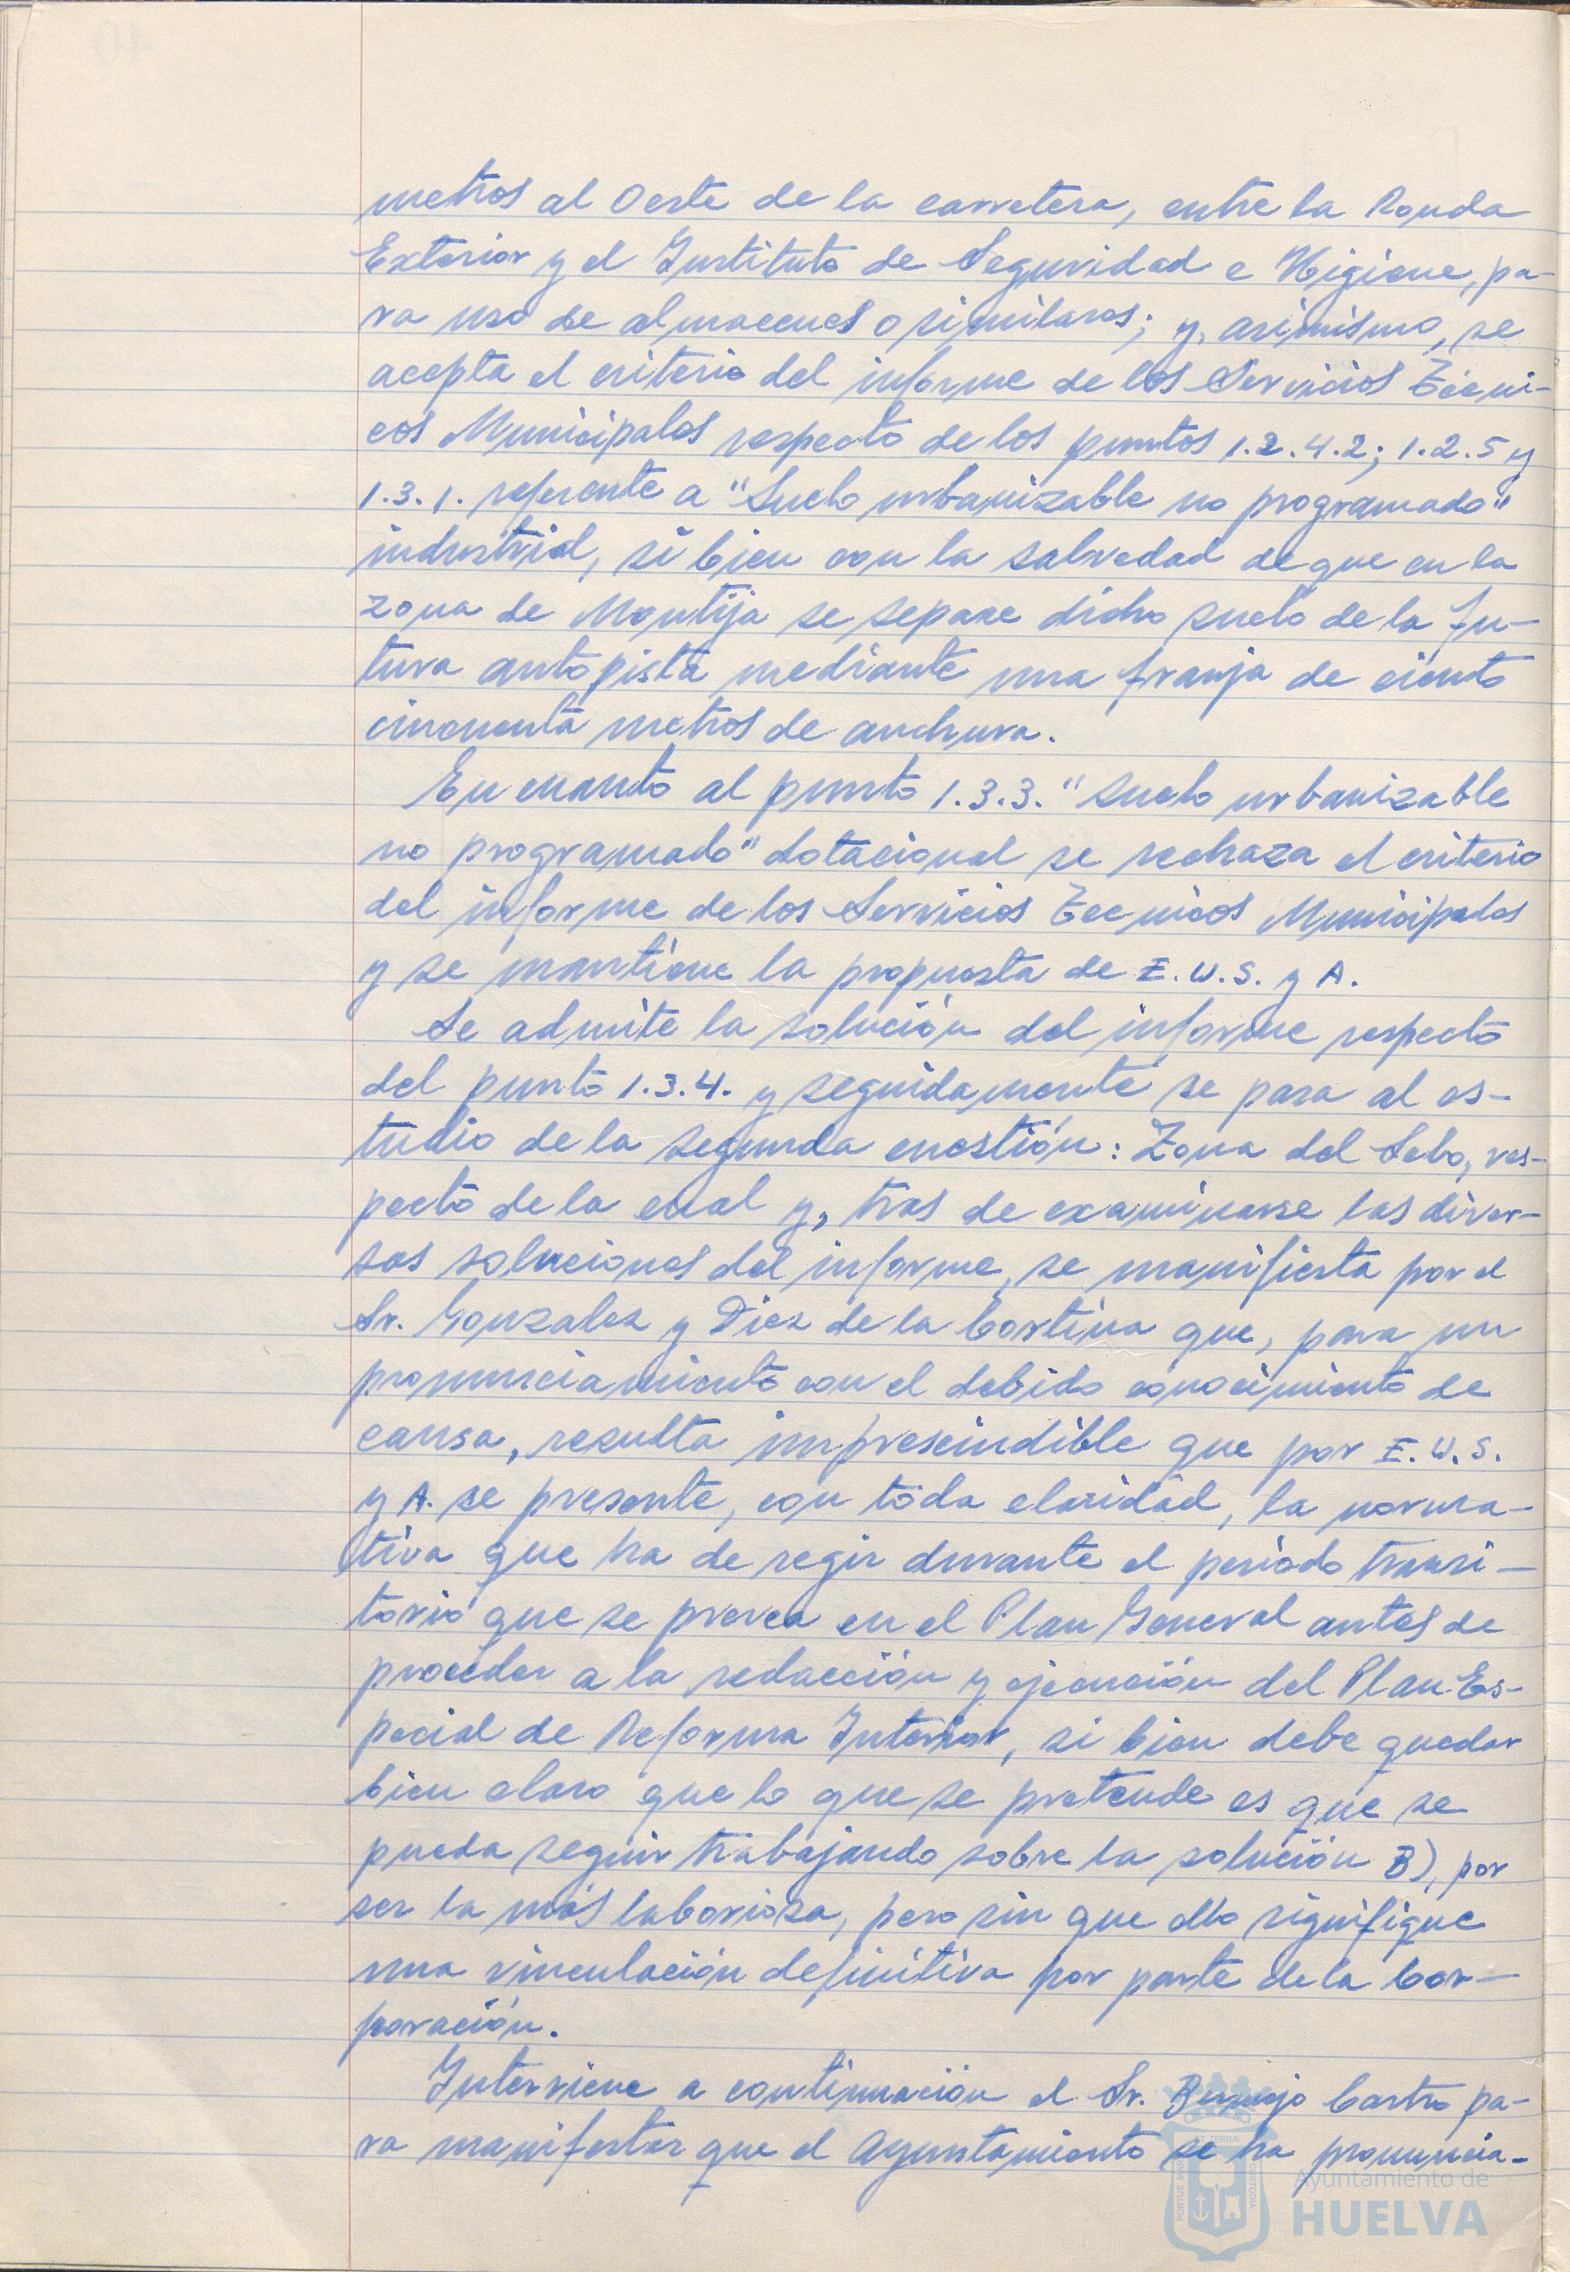 metros al Oeste de la carretera, entre la Ronda
Exterior y el Instituto de Seguridad e Higiene, pa-
ra uso de almacenes o similares; y, asimismo, se
acepta el criterio del informe de los Servicios Técni-
cos Municipales respecto de los puntos 1.2.4.2; 1.2.5 y
1.3.1. referente a "Suelo urbanizable no programado"
industrial, si bien con la salvedad de que en la
zona de Montija se separe dicho suelo de la fu-
tura autopista mediante una franja de ciento
cincuenta metros de anchura.
En cuanto al punto 1.3.3. "Suelo urbanizable
no programado" dotacional se rechaza el criterio
del informe de los Servicios Tecnicos Municipales
y se mantiene la propuesta de E.U.S. y A.
Se admite la solución del informe respecto
del punto 1.3.4. y seguidamente se pasa al es-
tudio de la segunda cuestión: Zona del Sebo, res-
pecto de la cual y, tras de examinarse las diver-
sas soluciones del informe, se manifiesta por el
Sr. Gonzalez y Diez de la Cortina que, para un
pronunciamiento con el debido conocimiento de
causa, resulta imprescindible que por E.U.S.
y A. se presente, con toda claridad, la norma-
tiva que ha de regir durante el periodo transi-
torio que se prevea en el Plan General antes de
proceder a la redacción y ejecución del Plan Es-
pecial de Reforma Interior, si bien debe quedar
bien claro que lo que se pretende es que se
pueda seguir trabajando sobre la solución B), por
ser la más laboriosa, pero sin que ello signifique
una vinculación definitiva por parte de la Cor-
poración.
Interviene a continuación el Sr. Bermejo Castro pa-
ra manifestar que el Ayuntamiento se ha pronuncia-
Ayuntamiento de
HUELVA